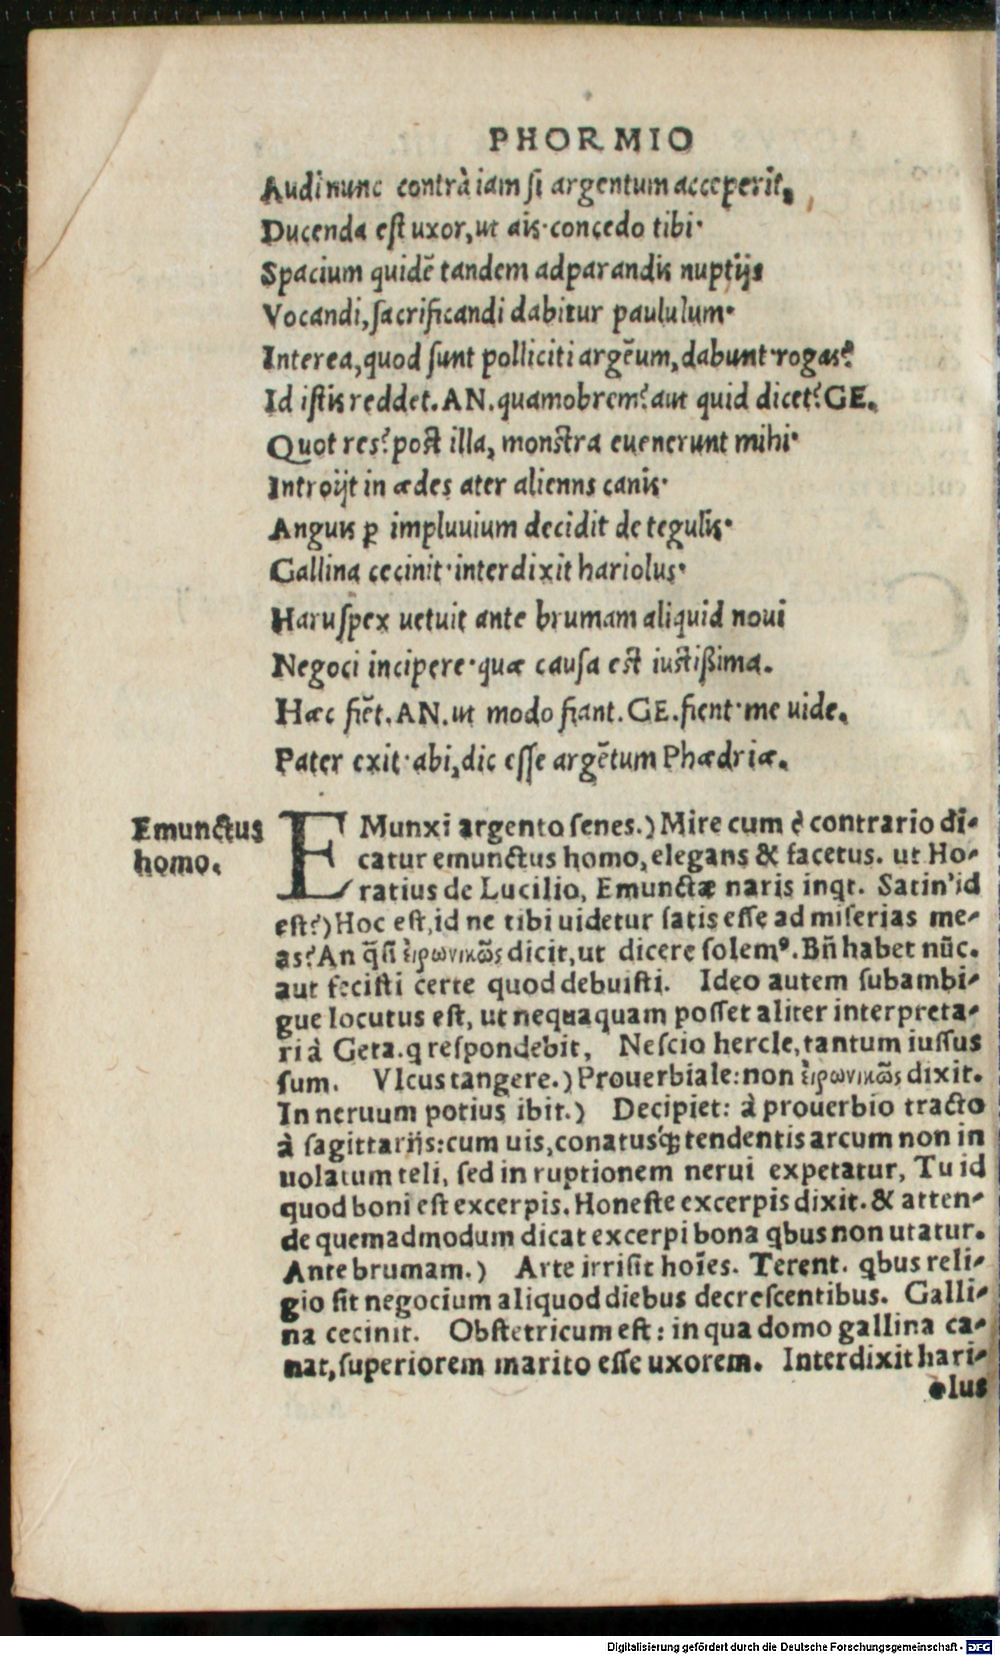 PHORMIO
Audi nunc contrà iam si argentum acceperit,
Ducenda est uxor, ut ais·concedo tibi·
Spacium quidē tandem adparandis nuptijs
Vocandi, sacrificandi dabitur paululum·
Interea, quod sunt polliciti argēum, dabunt·rogas?
Id istis reddet. AN. quamobrem? aut quid dicet? GE.
Quot res? post illa, monstra euenerunt mihi·
Introijt in ædes ater alienns canis·
Anguis ꝑ impluuium decidit de tegulis·
Gallina cecinit·interdixit hariolus·
Haruspex uetuit ante brumam aliquid noui
Negoci incipere·quæ causa est iustißima.
Hæc fiēt. AN. ut modo fiant. GE. fient·me uide.
Pater exit·abi, dic esse argētum Phædriæ.
Emunctus
homo.
EMunxi argento senes.) Mire cum è contrario di-
catur emunctus homo, elegans & facetus. ut Ho-
ratius de Lucilio, Emunctæ naris inqt. Satin'id
est?) Hoc est, id ne tibi uidetur satis esse ad miserias me-
as? An q̄si εἰρωνικῶς dicit, ut dicere solemꝰ. Bñ habet nūc.
aut fecisti certe quod debuisti. Ideo autem subambi-
gue locutus est, ut nequaquam posset aliter interpreta-
ri à Geta. q respondebit, Nescio hercle, tantum iussus
sum. Vlcus tangere.) Prouerbiale: non εἰρωνικῶς dixit.
In neruum potius ibit.) Decipiet: à prouerbio tracto
à sagittarijs: cum uis, conatusꝙ tendentis arcum non in
uolatum teli, sed in ruptionem nerui expetatur, Tu id
quod boni est excerpis. Honeste excerpis dixit. & atten-
de quemadmodum dicat excerpi bona qbus non utatur.
Ante brumam.) Arte irrisit hoīes. Terent. qbus reli-
gio sit negocium aliquod diebus decrescentibus. Galli-
na cecinit. Obstetricum est: in qua domo gallina ca-
nat, superiorem marito esse uxorem. Interdixit hari-
olus
Digitalisierung gefördert durch die Deutsche Forschungsgemeinschaft - DFG